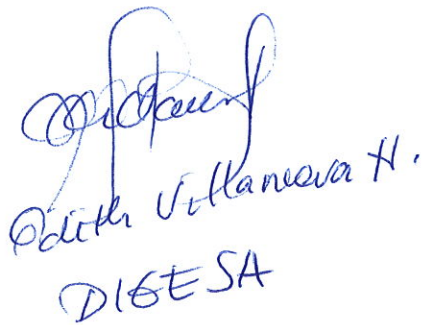 Edith Villanueva H.
DIGESA